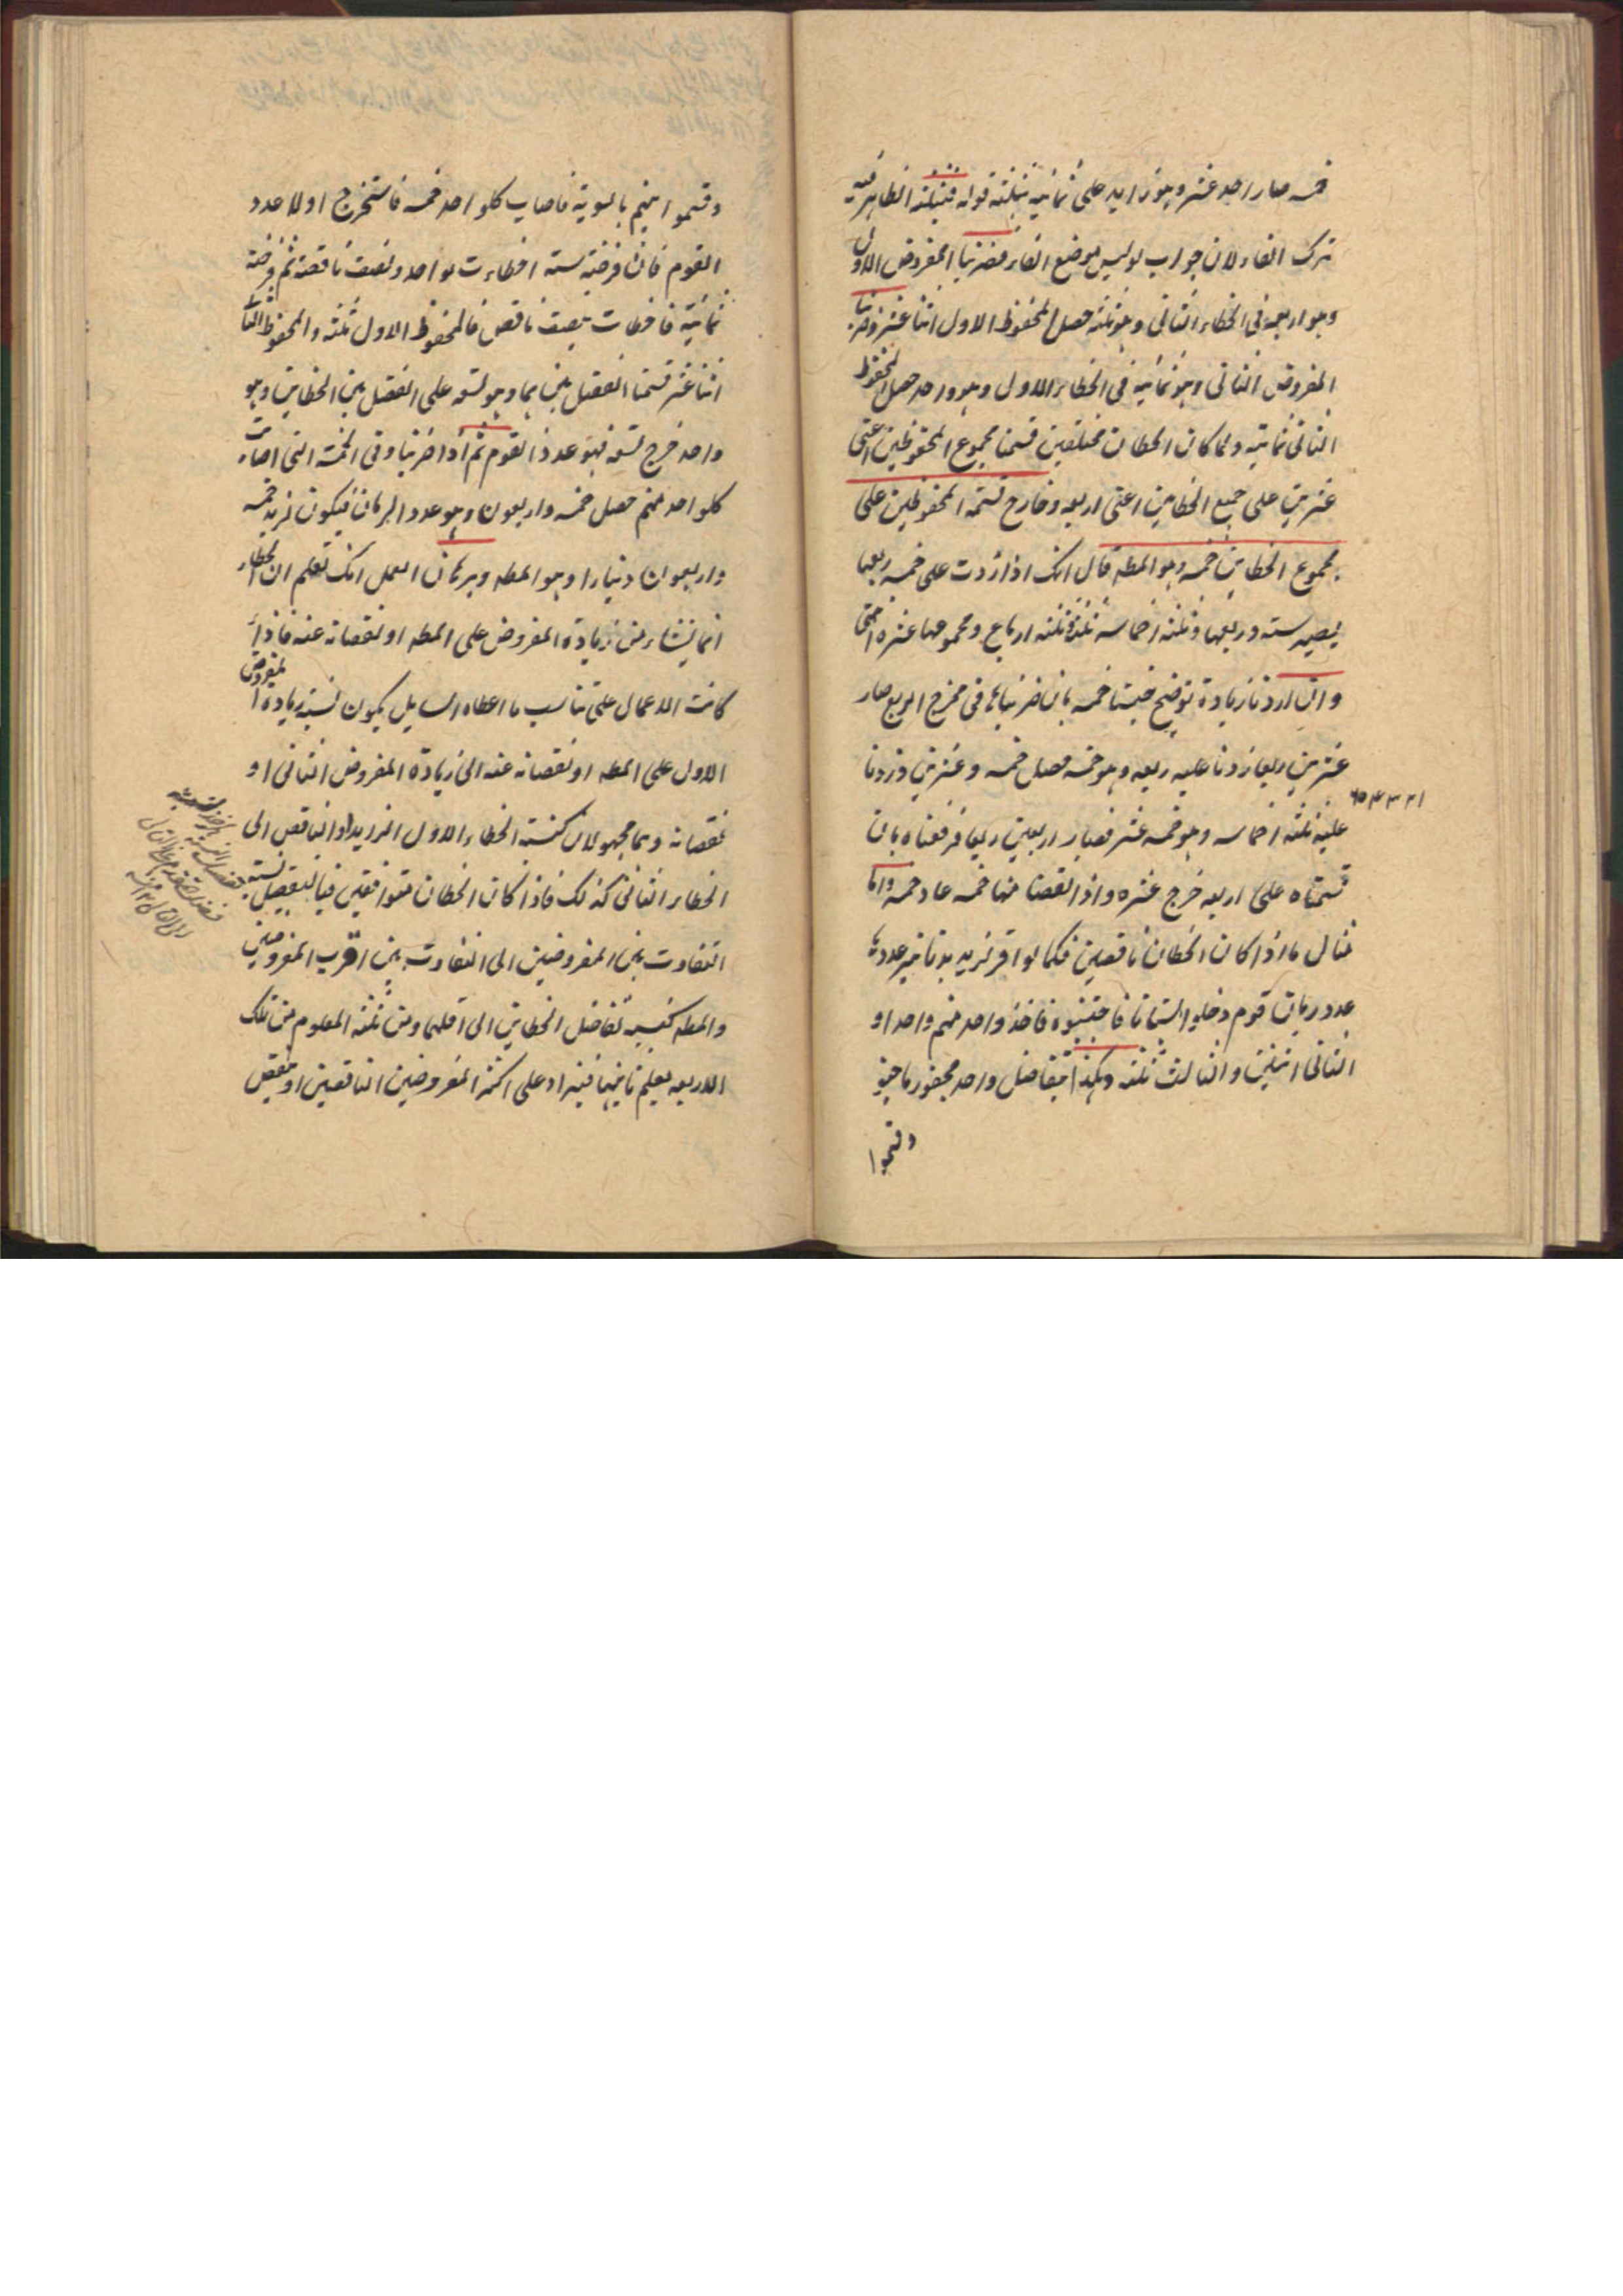 خمسه صار احد عشر وهو زايد على ثمانية بثلثة قوله فبثلثة الظاهر فيه
ترك الفاء لان جواب لو ليس موضع الفاء فضربنا المفروض الاول
وهو اربعة فى الخطاء الثانى وهو ثلثه حصل المحفوظ الاول اثنا عشر وضربنا
المفروض الثانى وهو ثمانية فى الخطاء الاول وهو واحد حصل المحفوظ
الثانى ثمانية ولما كان الخطاان مختلفين قسمنا مجموع المحفوظين اعنى
عشرين على جميع الخطاين اعنى اربعه وخارج قسمة المحفوظين على
مجموع الخطاين خمسه وهو المطه قال انك اذا زدت على خمسه ربعها
يصير سته وربعها وثلثه اخماسه ثلثة وثلثه ارباع ومجموعها عشره انتهى
وان اردنا زيادة توضيح جنسنا خمسه بان ضربناها فى مخرج الربع صار
عشرين ربعا زدنا عليه ربعه وهو خمسه فصل خمسه وعشرين وزدنا
عليه ثلثه اخماسه وهو خمسه عشر فصار اربعين ربعا فرفعناه بان
قسمناه على اربعه خرج عشره واذا نقصنا منها خمسه عاد خمسه واما
مثال ما اذا كان الخطاان ناقصين فكما لو اقر لزيد بدنانير عددها
عدد رمان قوم دخلوا بستانا فاجتنبوه فاخذ واحد منهم واحدا و
الثانى اثنين والثالث ثلثه وهكذا بتفاضل واحد
وقسموا
وقسموا بينهم بالسوية فاصاب كلواحد خمسه فاستخرج اولا عدد
القوم فان فرضته سته اخطاءت بواحد ونصف ناقصة ثم فرضته
ثمانية فاخطات بنصف ناقص فالمحفوظ الاول ثلثه والمحفوظ الثانى
اثنا عشر قسمنا الفضل بينهما وهو تسعه على الفضل بين الخطاين وهو
واحد خرج تسعه فهو عدد القوم ثم اذا ضربنا وفى الخمسة التى اصابت
كلواحد منهم حصل خمسه واربعون وهو عدد الرمان فيكون لزيد خمسه
واربعون دينارا وهو المطه وبرهان العمل انك تعلم ان الخطاء
انما ينشاء من زيادة المفروض على المطه او نقصانه عنه فاذا
كانت الاعمال على تناسب ما اعطاه السايل يكون نسبة زيادة المفروض
الاول على المطه او نقصانه عنه الى زيادة المفروض الثانى او
نقصانه وهما مجهولان كنسبة الخطاء الاول الزايد او الناقص الى
الخطاء الثانى كذلك فاذا كان الخطاان متوافقين فبالتفصيل نسبة
التفاوت بين المفروضين الى التفاوت بين اقرب المفروضين
والمطه كنسبة تفاضل الخطاين الى اقلهما ومن ثلثه المعلوم من تلك
الاربعه يعلم ثانيها فيزاد على اكثر المفروضين الناقصين او ينقص